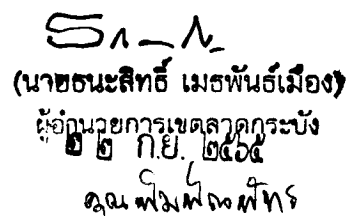 (นายธนะสิทธิ์ เมธพันธ์เมือง)
ผู้อำนวยการเขตลาดกระบัง
๒ ๒ ก.ย. ๒๕๖๕